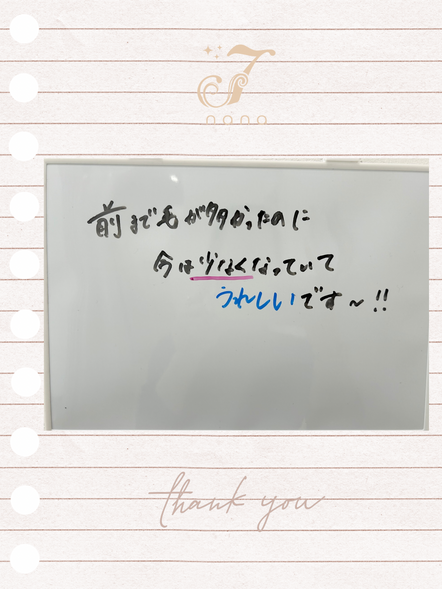 nana
前まで毛が多かったのに
今は少なくなっていて
うれしいです〜!!
thank you